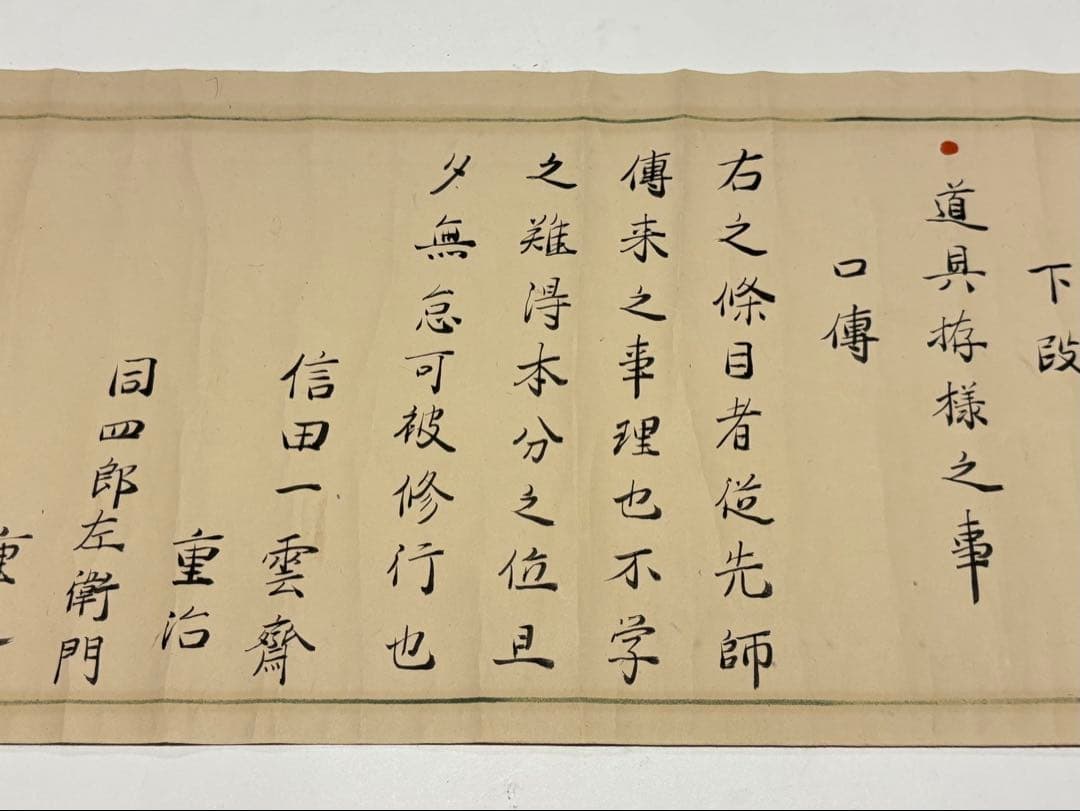 下段
道具拵様之事
口傳
右之條目者従先師
傳来之事理也不学
之難得本分之位且
夕無怠可被修行也
信田一雲齋
重治
同四郎左衛門
重